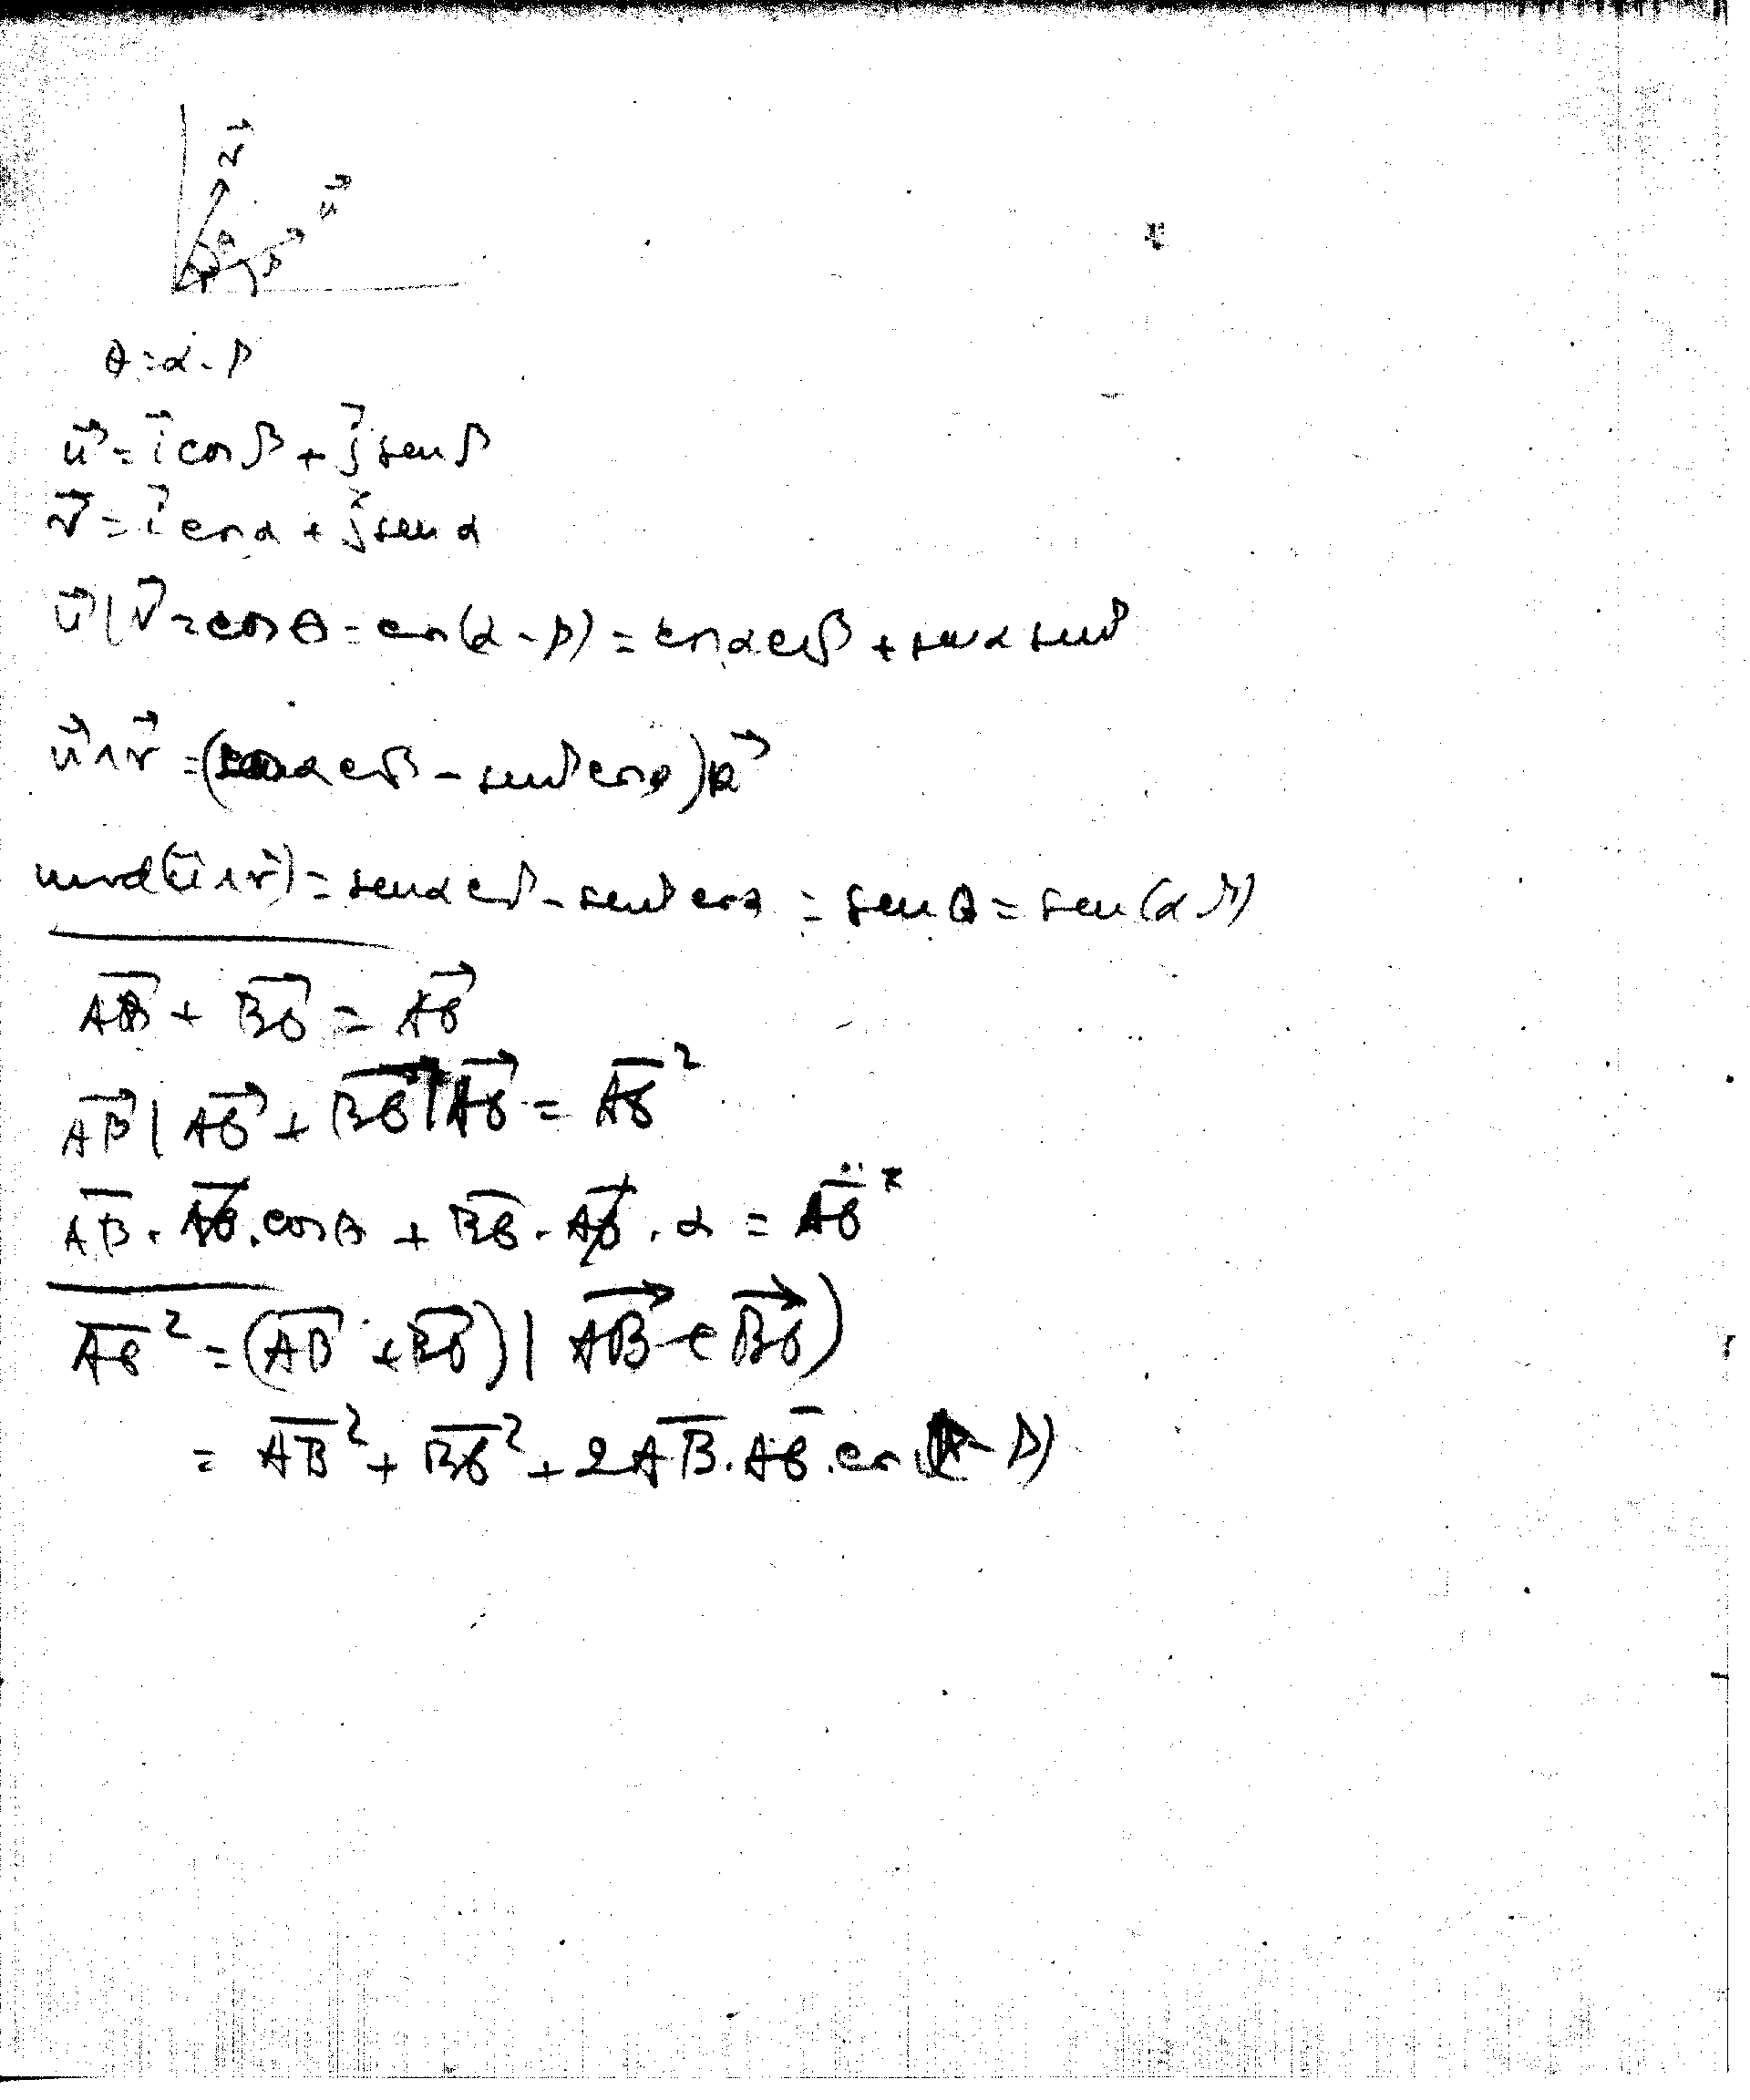 v⃗
u⃗
θ
β
θ = α - β
u⃗ = i⃗ cos β + j⃗ sen β
v⃗ = i⃗ cos α + j⃗ sen α
u⃗ | v⃗ = cos θ = cos(α - β) = cos α cos β + sen α sen β
u⃗ ∧ v⃗ = (sen α cos β - sen β cos α) k⃗
mod(u⃗ ∧ v⃗) = sen α cos β - sen β cos α = sen θ = sen(α - β)
A⃗B + B⃗C = A⃗C
A⃗B | A⃗C + B⃗C | A⃗C = A̅C̅²
A̅B̅ . A̅C̅ . cos θ + B̅C̅ . A̅C̅ . α = A̅C̅²
A̅C̅² = (A⃗B + B⃗C) | A⃗B + B⃗C)
= A̅B̅² + B̅C̅² + 2 A̅B̅ . A̅C̅ . cos ( - β)